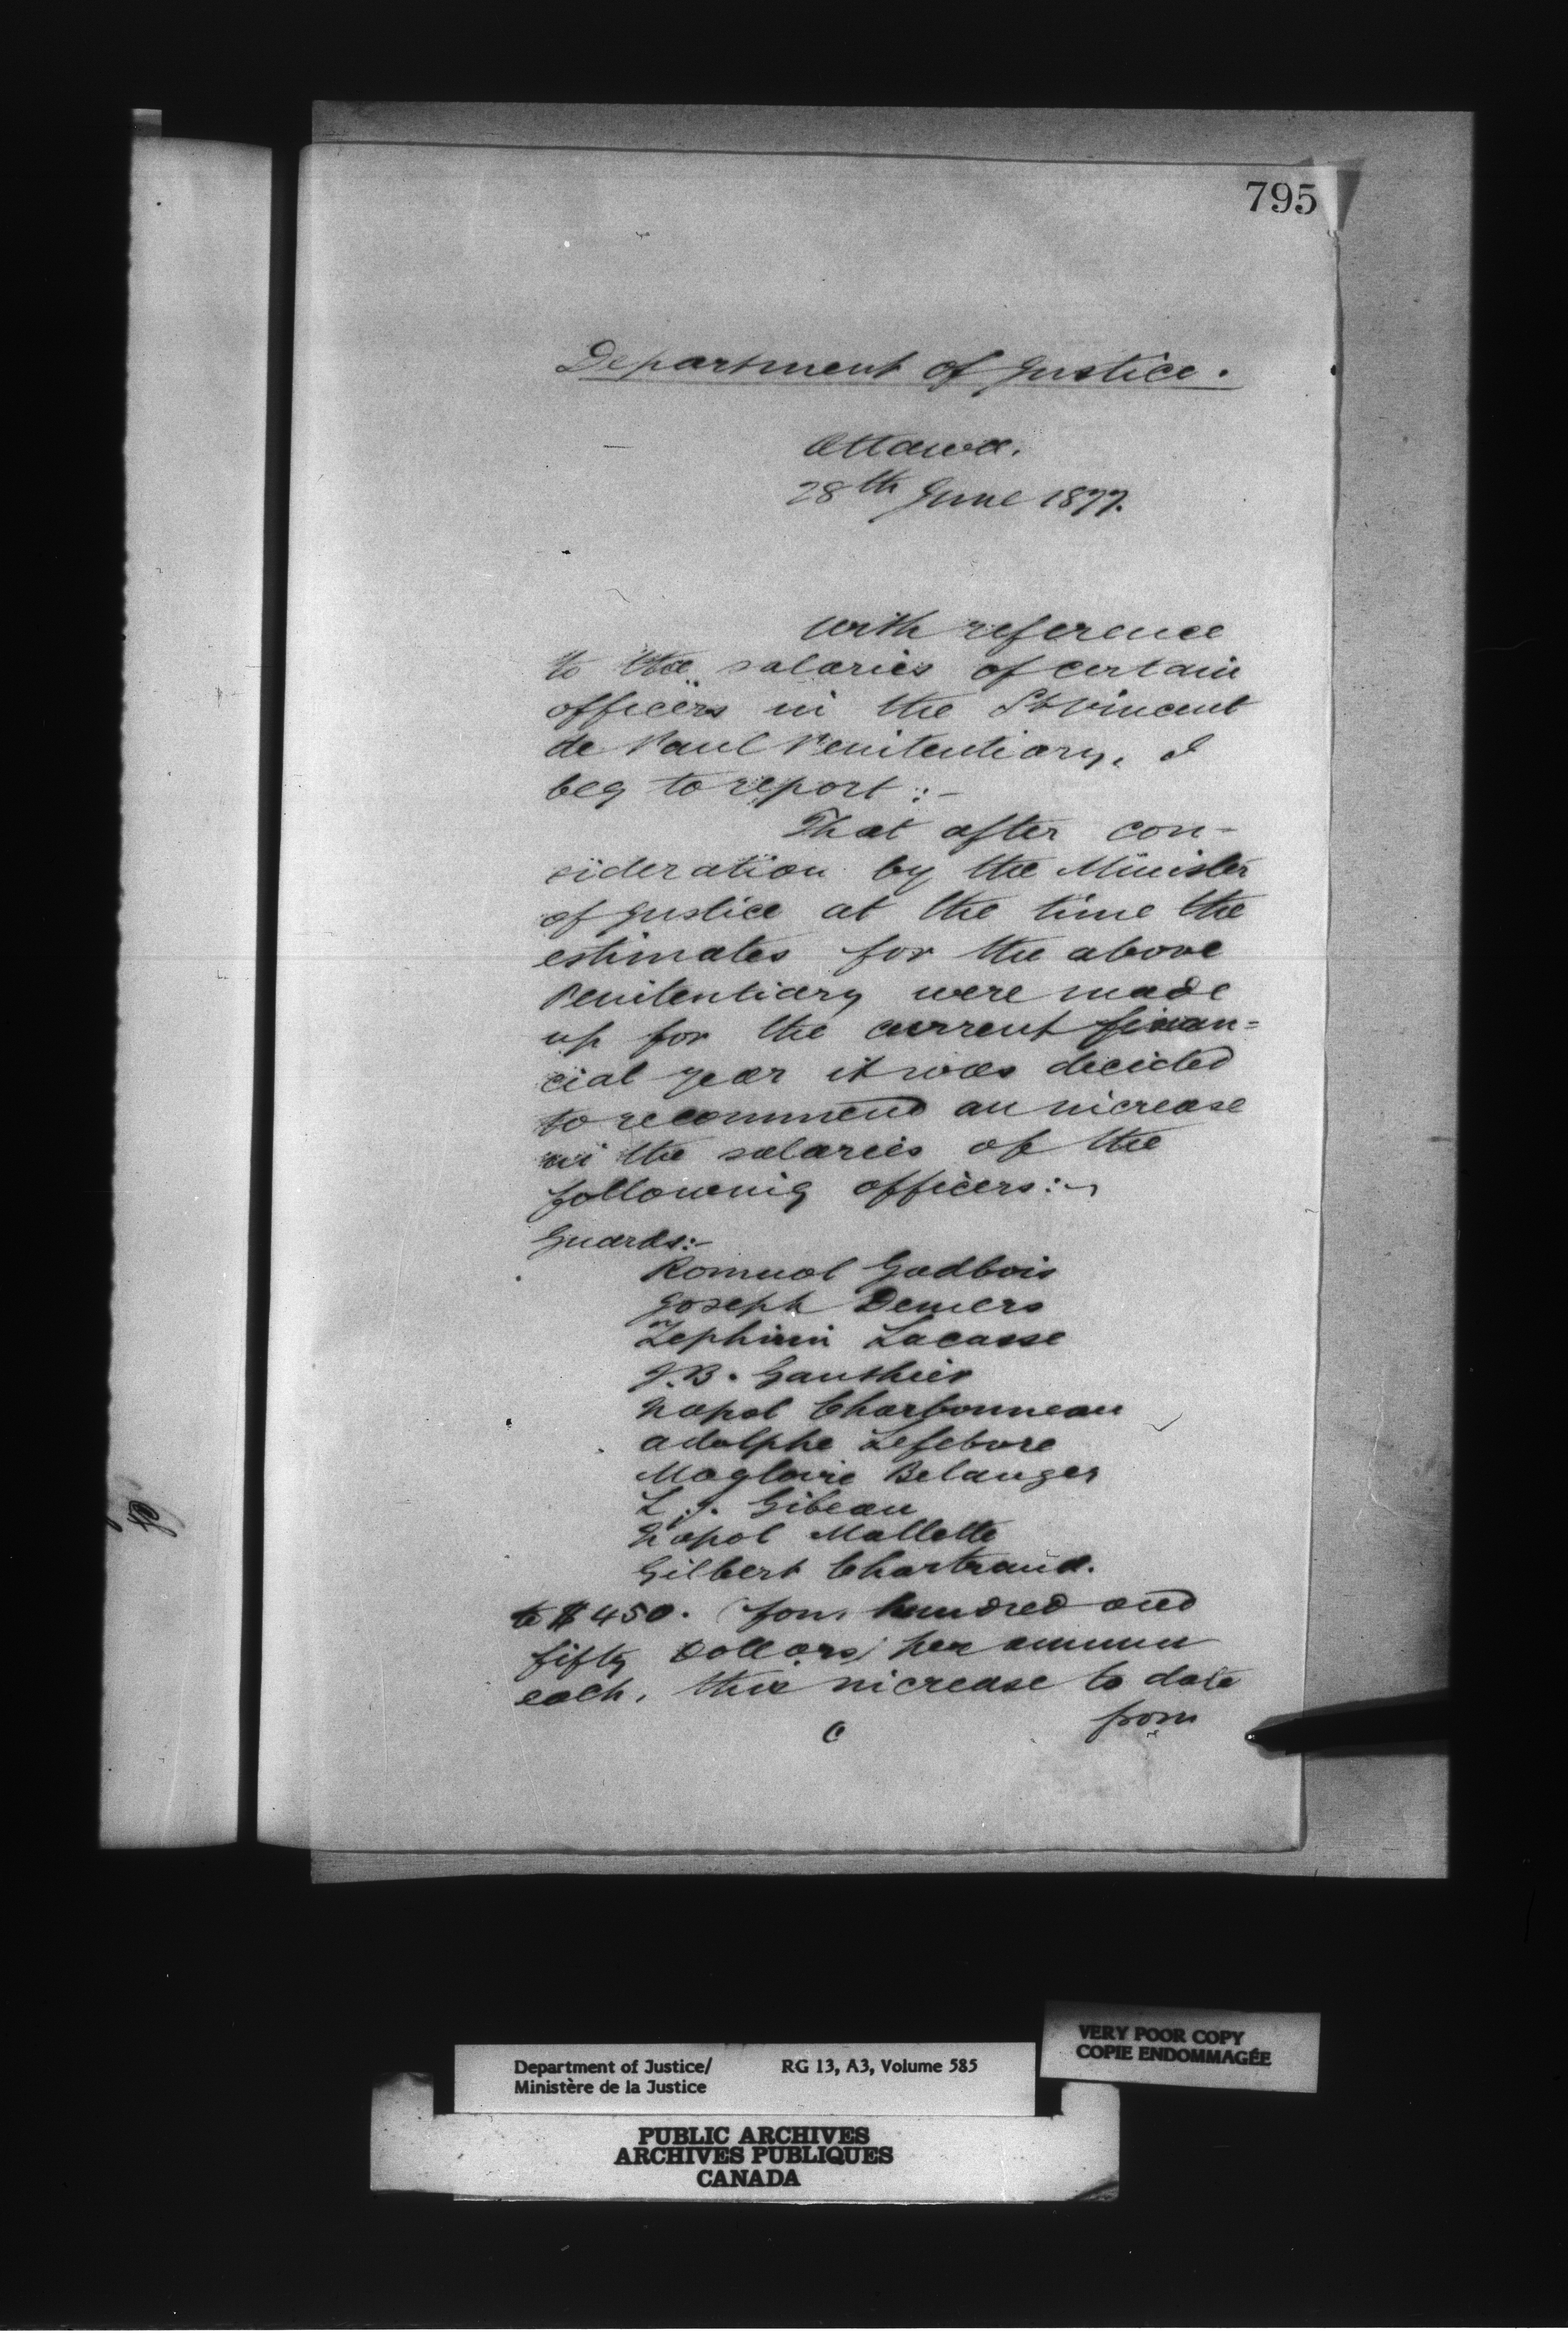 795
Department of Justice.
Ottawa.
28th June 1877.
With reference
to the salaries of certain
officers in the St Vincent
de Paul Penitentiary, I
beg to report :-
That after con-
sideration by the Minister
of Justice at the time the
estimates for the above
Penitentiary were made
up for the current finan=
cial year it was decided
to recommend an increase
in the salaries of the
following officers:-
Guards:-
Romual Gadbois
Joseph Demers
Zephirin Lacasse
J.B. Gauthier
Napol Charbonneau
Adolphe Lefebvre
Magloire Belanger
L. J. Gibeau
Napol Mallette
Gilbert Chartrand.
to $450. (four hundred and
fifty Dollars) per annum
each, this increase to date
from
Department of Justice/
Ministère de la Justice
RG 13, A3, Volume 585
VERY POOR COPY
COPIE ENDOMMAGÉE
PUBLIC ARCHIVES
ARCHIVES PUBLIQUES
CANADA